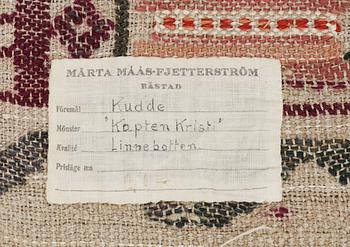 MÄRTA MÅÅS-FJETTERSTRÖM
BÅSTAD
Föremål Kudde
Mönster "Kapten Kristi"
Kvalité Linnebotten.
Prisläge m²